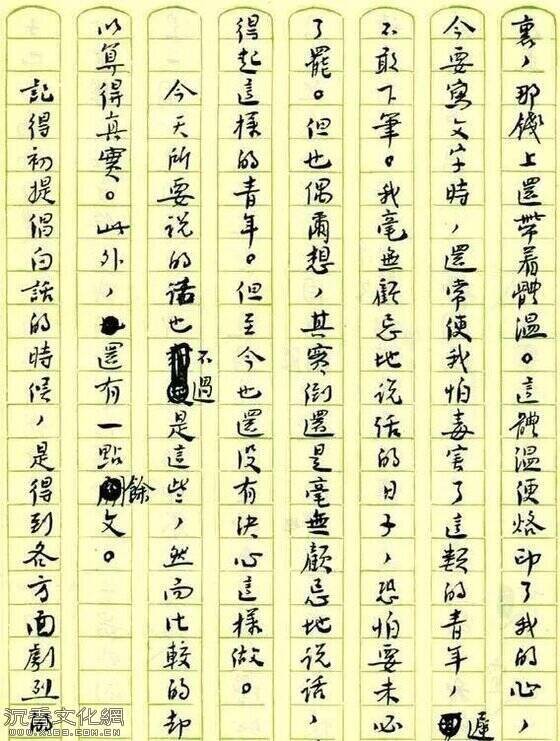 裏，那錢上還帶着體溫。這體溫便烙印了我的心，
今要寫文字時，還常使我怕毒害了這類的青年，遲
不敢下筆。我毫無顧忌地说話的日子，恐怕要未必
了罷。但也偶爾想，其實倒還是毫無顧忌地说話，
得起這樣的青年。但至今也還没有决心這樣做。
今天所要说的話也不過是這些，然而比較的却
以算得真實。此外，還有一點餘文。
記得初提倡白話的時候，是得到各方面劇烈
沉香文化網